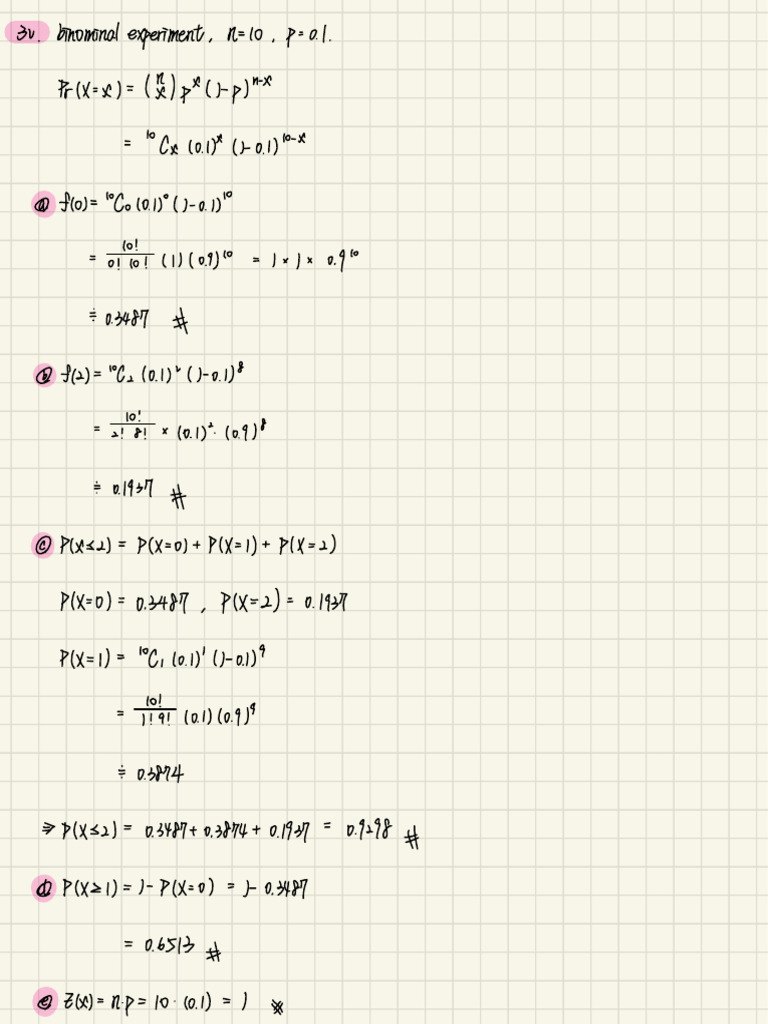 30. binominal experiment, n=10, p=0.1.
Pr(X=x) = (n x) p^x (1-p)^n-x
= ¹⁰Cx (0.1)^x (1-0.1)^10-x
ⓐ f(0) = ¹⁰C₀ (0.1)⁰ (1-0.1)¹⁰
= 10! / 0! 10! (1)(0.9)¹⁰ = 1 × 1 × 0.9¹⁰
≑ 0.3487 #
ⓑ f(2) = ¹⁰C₂ (0.1)² (1-0.1)⁸
= 10! / 2! 8! × (0.1)² · (0.9)⁸
≑ 0.1937 #
ⓒ P(X≤2) = P(X=0) + P(X=1) + P(X=2)
P(X=0) = 0.3487, P(X=2) = 0.1937
P(X=1) = ¹⁰C₁ (0.1)¹ (1-0.1)⁹
= 10! / 1! 9! (0.1)(0.9)⁹
≑ 0.3874
⇒ P(X≤2) = 0.3487 + 0.3874 + 0.1937 = 0.9298 #
ⓓ P(X≥1) = 1 - P(X=0) = 1 - 0.3487
= 0.6513 #
ⓔ E(x) = n·p = 10 · (0.1) = 1 #